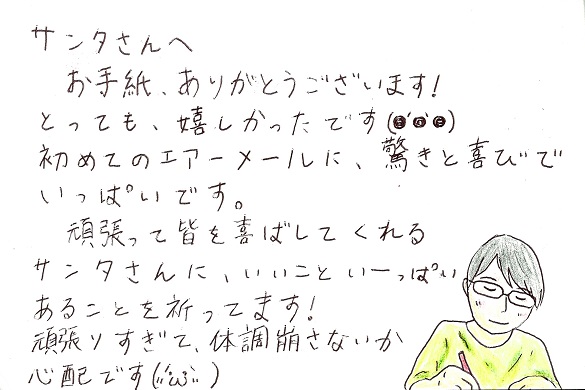 サンタさんへ
お手紙、ありがとうございます!
とっても、嬉しかったです
初めてのエアーメールに、驚きと喜びで
いっぱいです。
頑張って皆を喜ばしてくれる
サンタさんに、いいこといーっぱい
あることを祈ってます!
頑張りすぎて、体調崩さないか
心配です